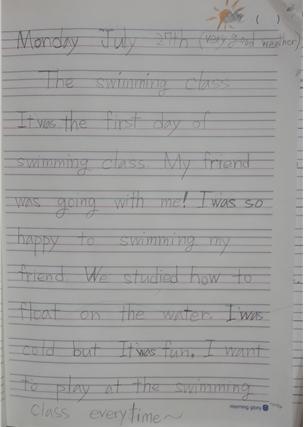 ( )
Monday July 27th (very good weather)
The swimming class
It was the first day of
swimming class. My friend
was going with me! I was so
happy to swimming my
friend. We studied how to
float on the water. I was
cold but It was fun. I want
to play at the swimming
class everytime~
morning glory